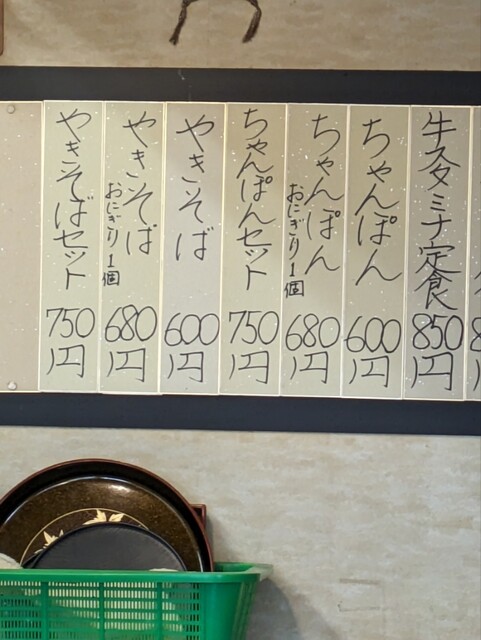 牛スタミナ定食 850円
ちゃんぽん 600円
ちゃんぽん おにぎり1個 680円
ちゃんぽんセット 750円
やきそば 600円
やきそば おにぎり1個 680円
やきそばセット 750円